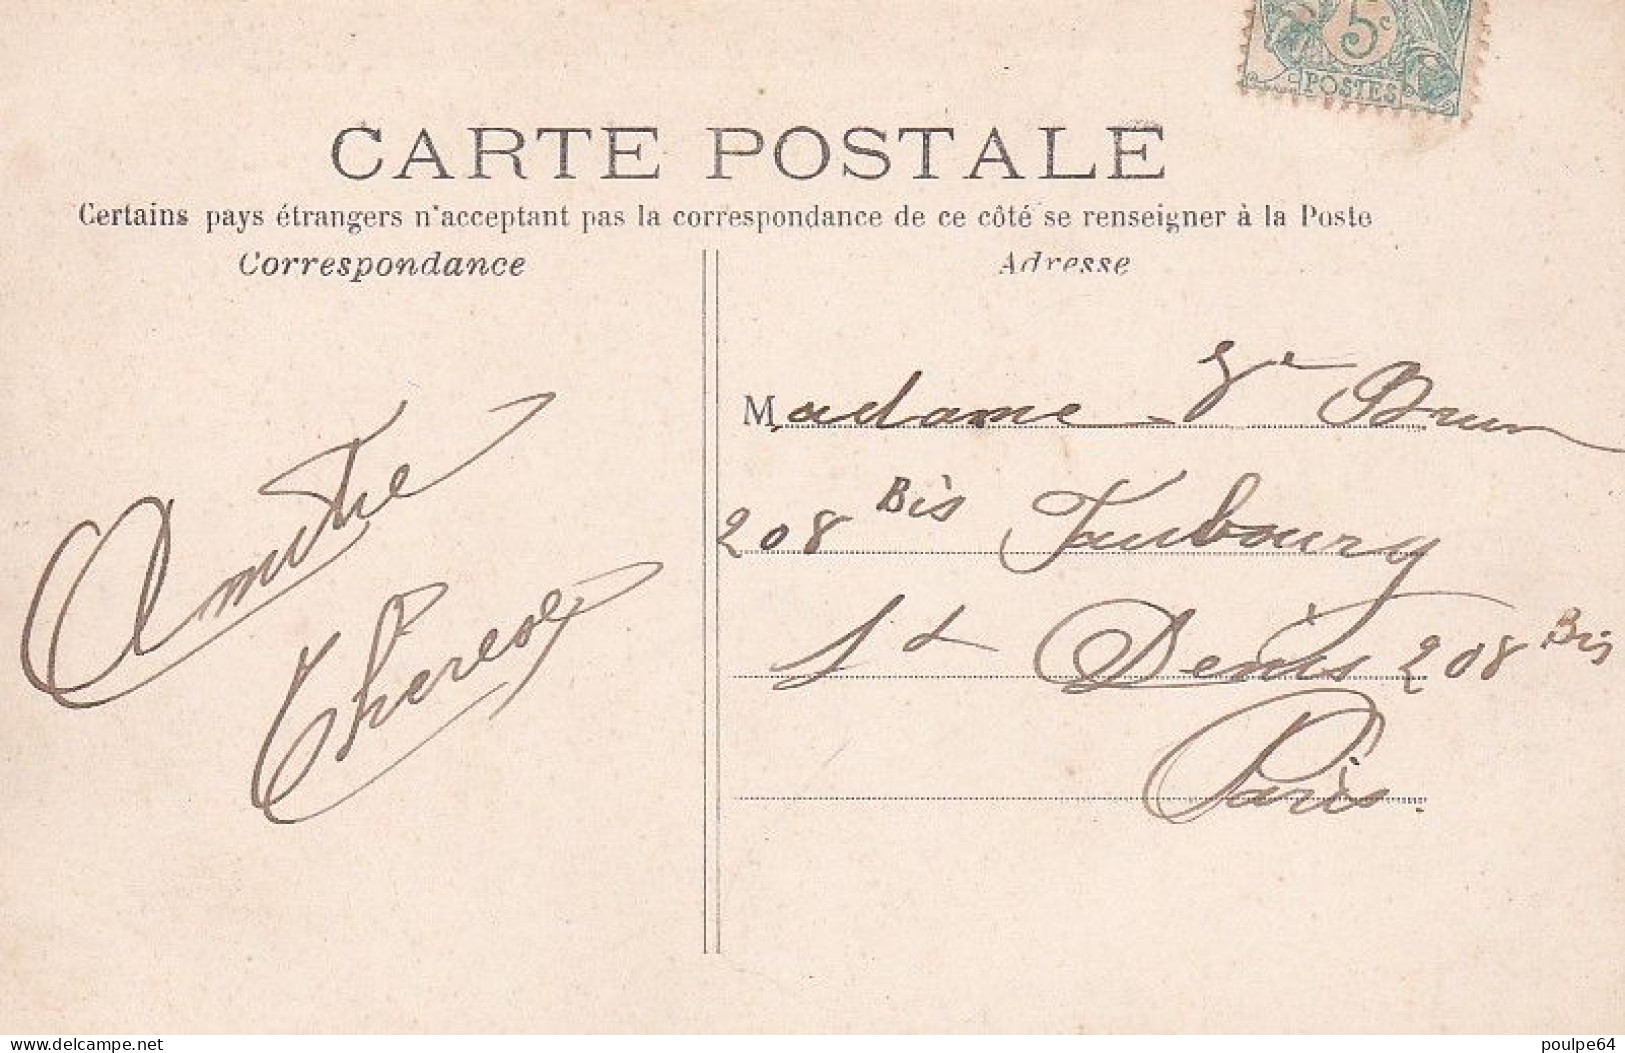 5c
POSTES
CARTE POSTALE
Certains pays étrangers n'acceptant pas la correspondance de ce côté se renseigner à la Poste
Correspondance
Adresse
Amitié
Thérèse
Madame Brun
208 Bis Faubourg
St Denis 208 Bis
Paris.
www.delcampe.net
poulpe64